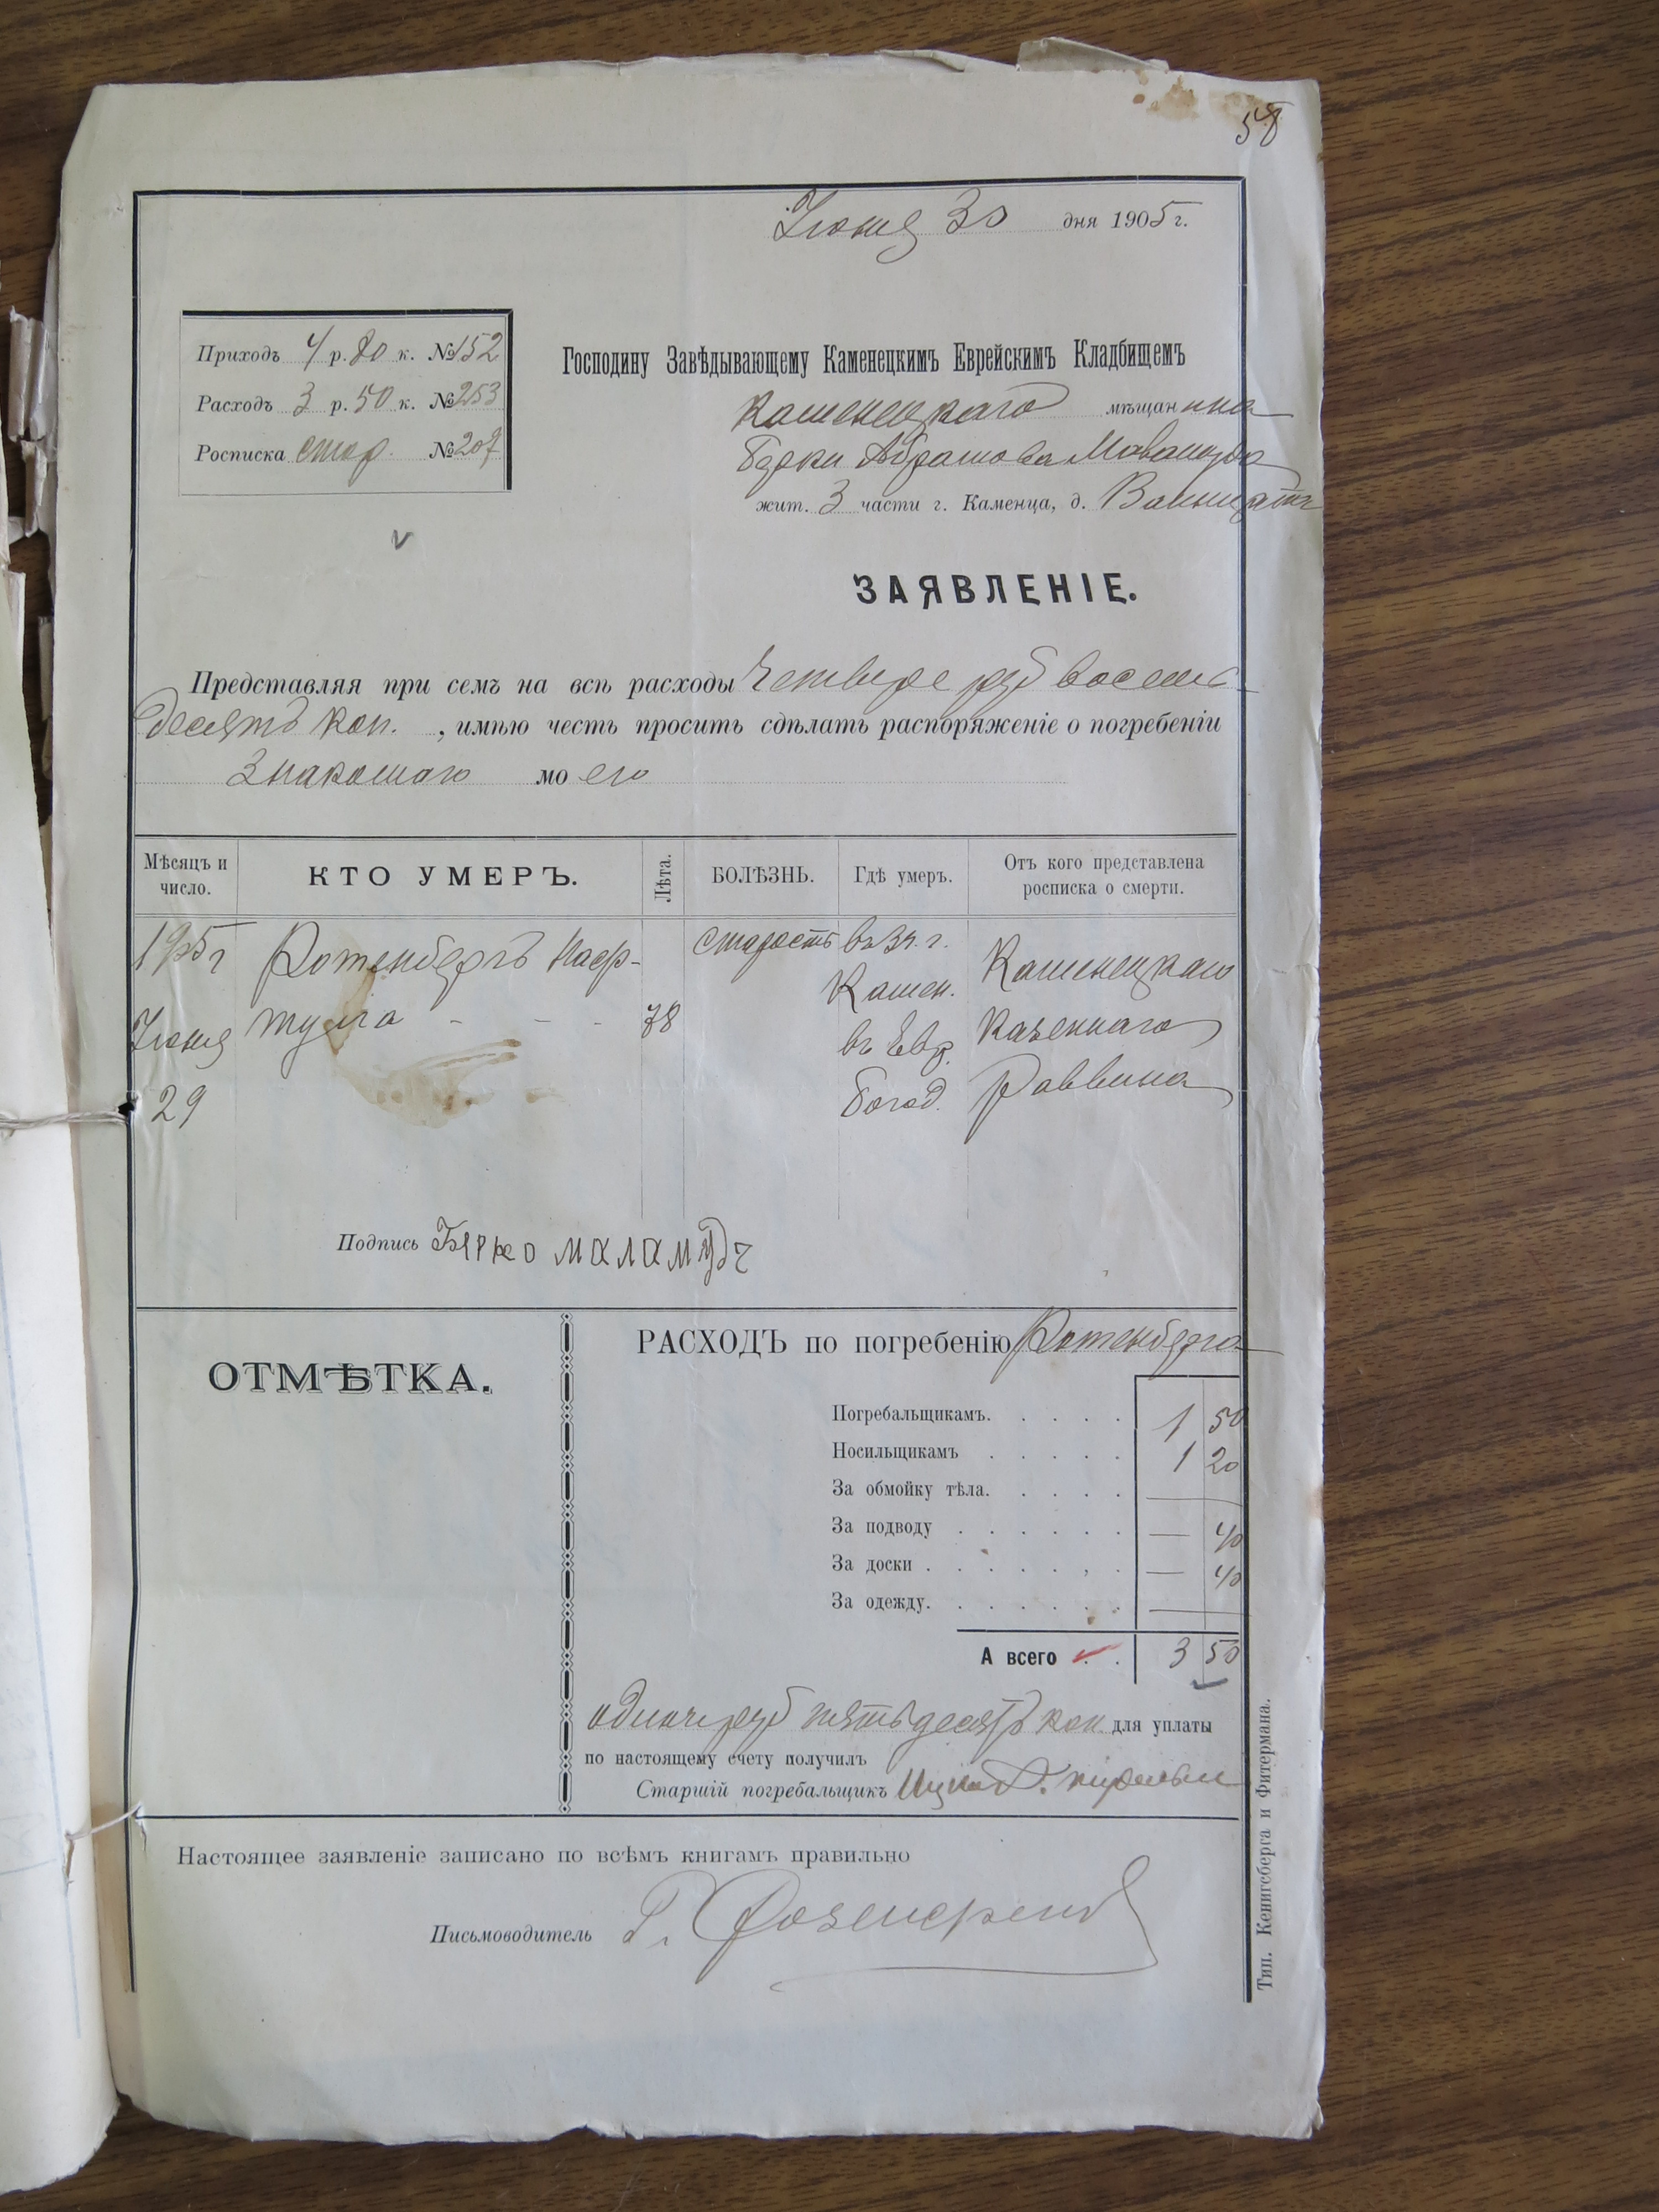 58
Июня 30 дня 1905 г.
Приходъ 4 р. 80 к. № 152
Расходъ 3 р. 50 к. № 253
Росписка стор. № 207
Господину Завѣдывающему Каменецкимъ Еврейскимъ Кладбищемъ
Каменецкаго мѣщанина
Берки Абрамова
жит. 3 части г. Каменца, д.
ЗАЯВЛЕНІЕ.
Представляя при семъ на всѣ расходы Четыре руб восемь-
десятъ коп. , имѣю честь просить сдѣлать распоряженіе о погребеніи
Знакомаго моего
Мѣсяцъ и число. КТО УМЕРЪ. Лѣта. БОЛѢЗНЬ. Гдѣ умеръ. Отъ кого представлена росписка о смерти.
1905 г Ротенбергъ Наф- старость въ 3 ч. г. Каменецкаго
Июня тула - - - 78 Камен. Казеннаго
29 въ Евр. Богад. Раввина
Подпись Берко маламудъ
ОТМѢТКА.
РАСХОДЪ по погребенію Ротенберга
Погребальщикамъ. 1 50
Носильщикамъ 1 20
За обмойку тѣла. —
За подводу — 40
За доски — 40
За одежду. —
А всего 3 50
одинъ руб пятьдесятъ коп. для уплаты
по настоящему счету получилъ
Старшій погребальщикъ
Настоящее заявленіе записано по всѣмъ книгамъ правильно
Письмоводитель
Тип. Кенигсберга и Фитермана.